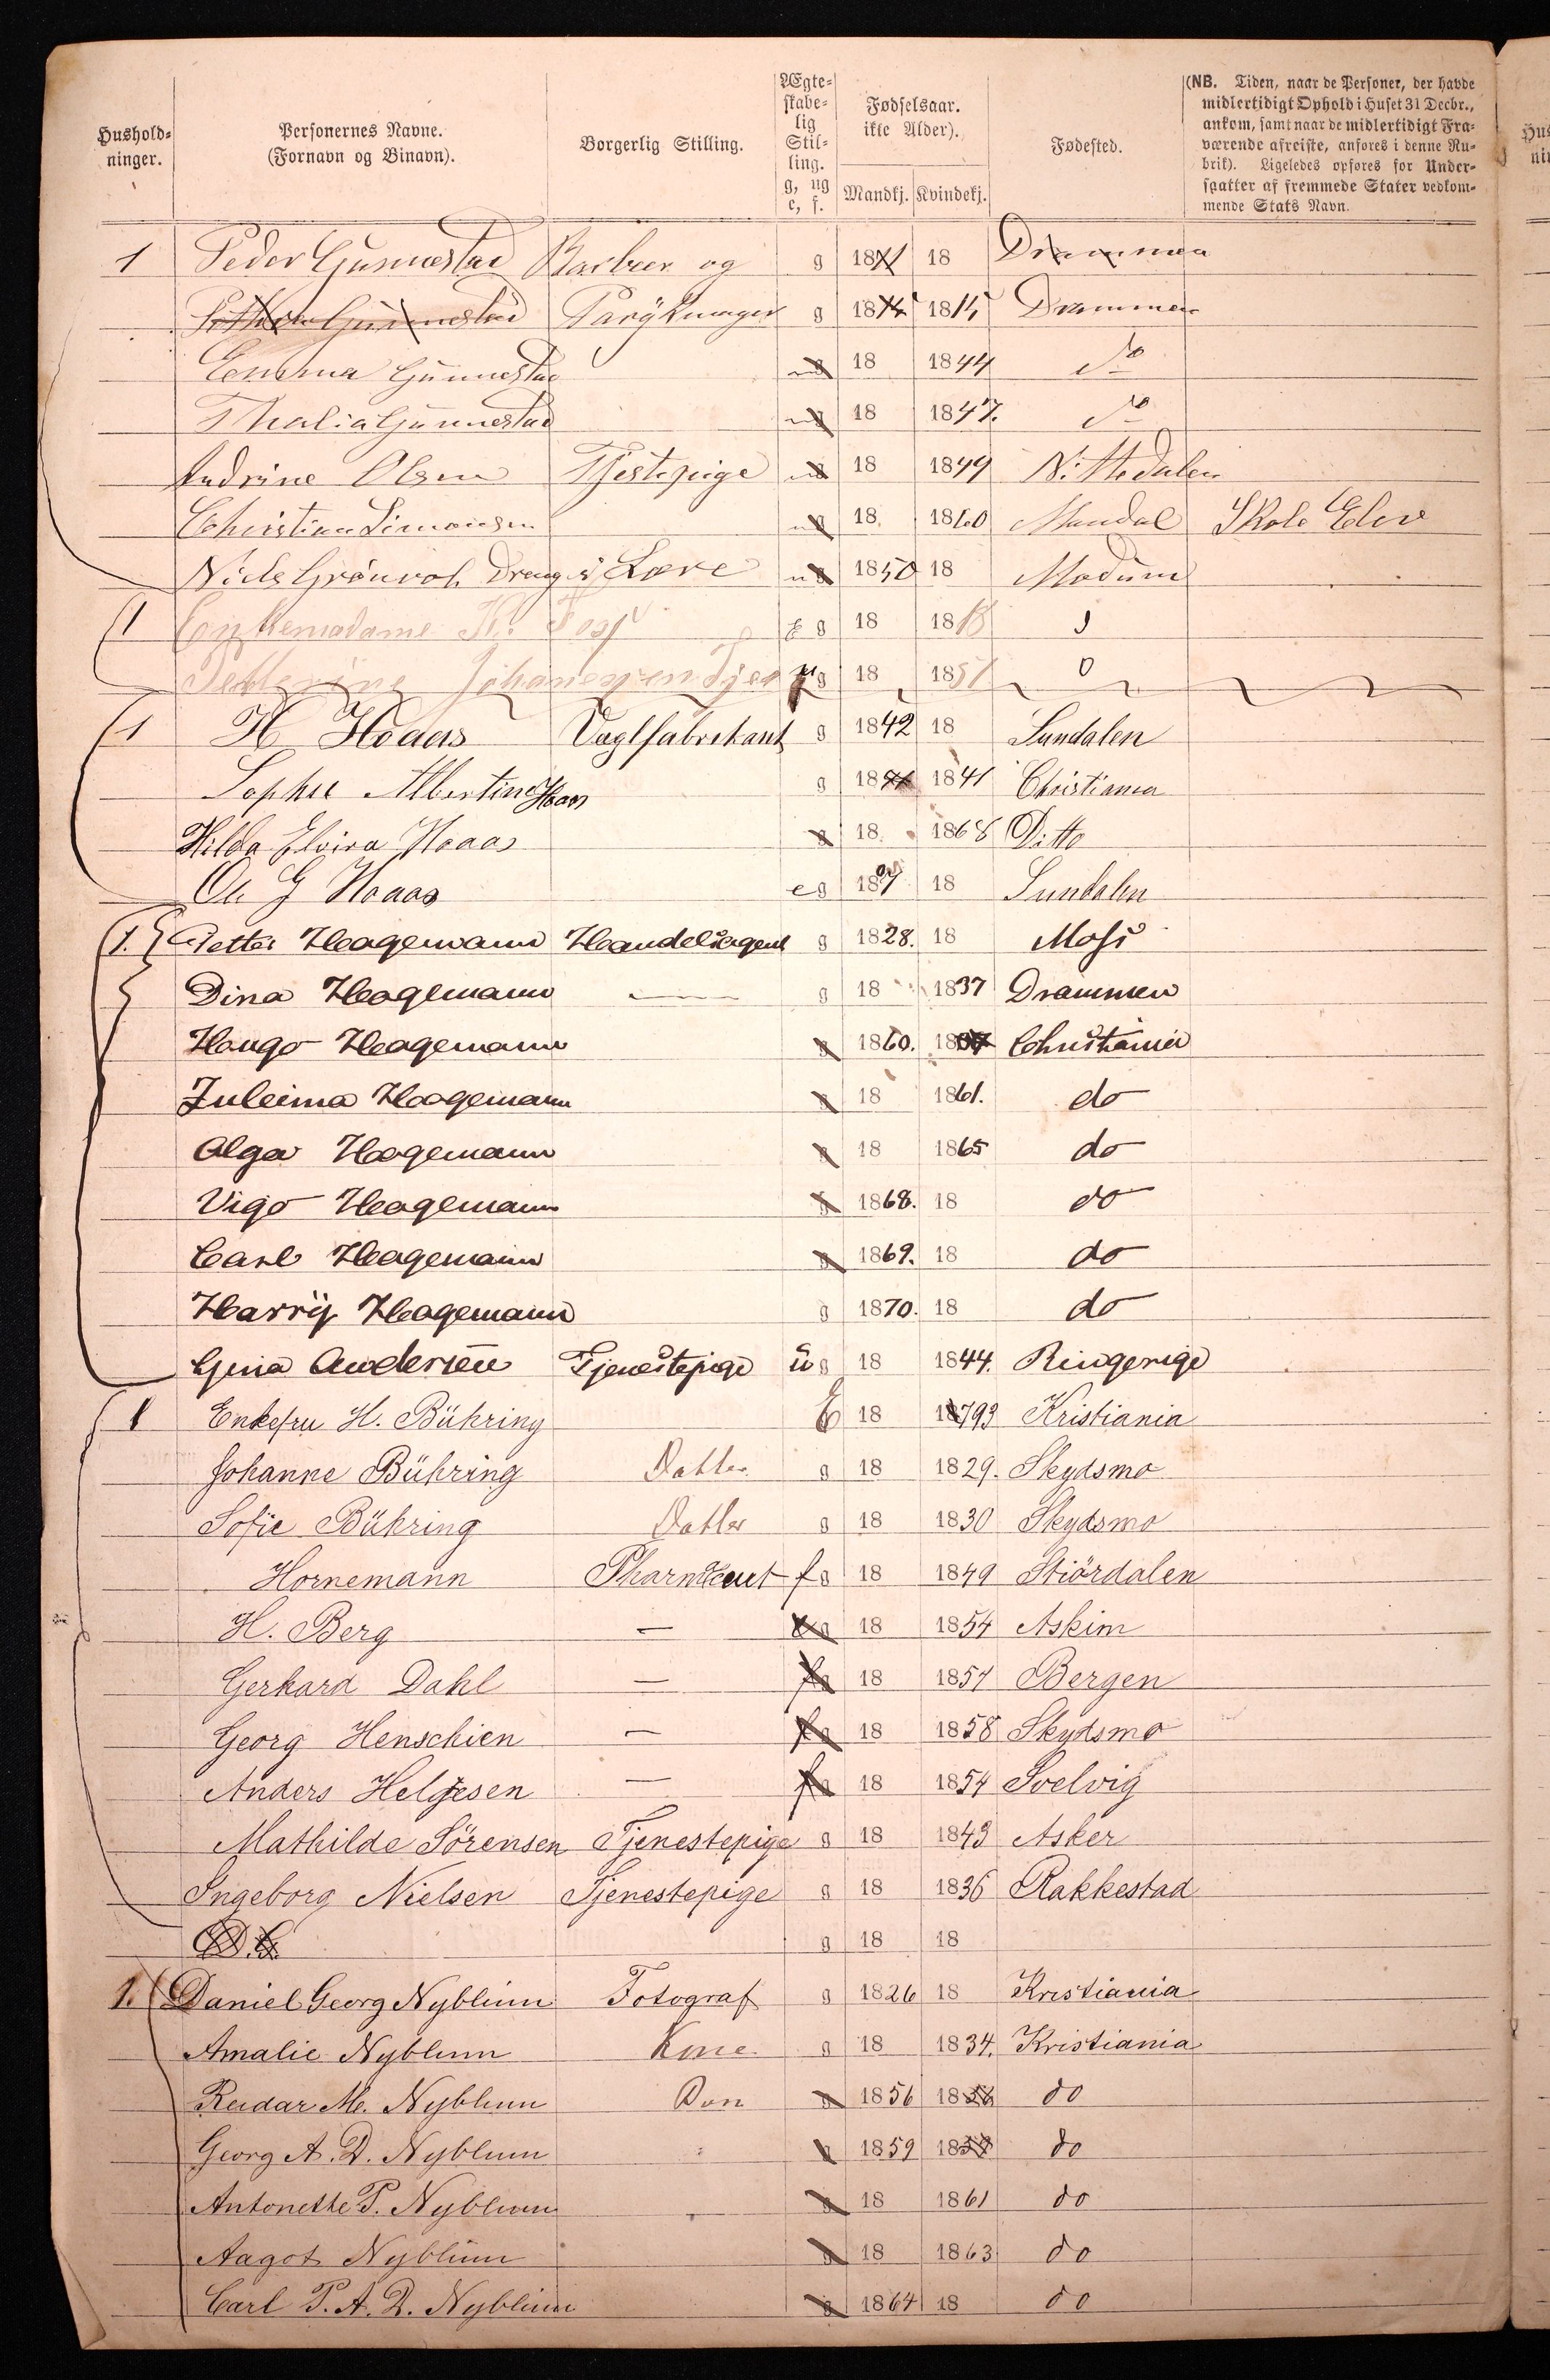 Hushold-
ninger.
Personernes Navne.
(Fornavn og Binavn).
Borgerlig Stilling.
Ægte-
skabe-
lig
Stil-
ling.
g, ug
e, f.
Fødselsaar.
ikke Alder).
Mandkj. Kvindekj.
Fødested.
(NB. Tiden, naar de Personer, der havde
midlertidigt Ophold i Huset 31 Decbr.,
ankom, samt naar de midlertidigt Fra-
værende afreiste, anføres i denne Ru-
brik). Ligeledes opføres for Under-
saatter af fremmede Stater vedkom-
mende Stats Navn.
1 Peder Gunnestad Barbeer og g 18 18 Drammen
Gunnestad Parykmager g 18 1815 Drammen
Emma Gunnestad ug 18 1844 do
Thalia Gunnestad ug 18 1847. do
Andrine Olsen Tjestepige ug 18 1849 Nittedalen
Christian Simonsen ug 18 1860 Mandal Skole Elev
Niels Grönvol Dreng i Lære ug 1850 18 Modum
1 Enkemadame Foss E g 18 18
Johannesen Tjen g 18 1851
1 H Haaas Vægtfabrikant g 1842 18 Sundalen
Sophie Albertine Haas g 18 1841 Christiania
Hilda Elvira Haaas g 18 1868 Ditto
Ole G Haaas e g 1809 18 Sundalen
1. Petter Hagemann Handelsagent g 1828. 18 Moss
Dina Hagemann — g 18 1837 Drammen
Haugo Hagemann g 1860. 18 Christiania
Zuleima Hagemann g 18 1861. do
Olga Hagemann g 18 1865 do
Vigo Hagemann g 1868. 18 do
Carl Hagemann g 1869. 18 do
Harry Hagemann g 1870. 18 do
Gina Andersen Tjenestepige u g 18 1844. Ringerige
1 Enkefru H. Bühring E 18 1793 Kristiania
Johanne Bühring Datter g 18 1829. Skydsmo
Sofie Bühring Datter g 18 1830 Skydsmo
Hornemann Pharmaceut f g 18 1849 Stiördalen
H. Berg — g 18 1854 Askim
Gerhard Dahl — f g 18 1854 Bergen
Georg Henschien — f g 18 1858 Skydsmo
Anders Helgesen — f g 18 1854 Svelvig
Mathilde Sörensen Tjenestepige g 18 1843 Asker
Ingeborg Nielsen Tjenestepige g 18 1836 Rakkestad
D. G. g 18 18
1. Daniel Georg Nyblin Fotograf g 1826 18 Kristiania
Amalie Nyblin Kone g 18 1834. Kristiania
Reidar M. Nyblin g 1856 1856 do
Georg A. D. Nyblin g 1859 1859 do
Antonette P. Nyblin g 18 1861 do
Aagot Nyblin g 18 1863 do
Carl P. A. D. Nyblin g 1864 18 do